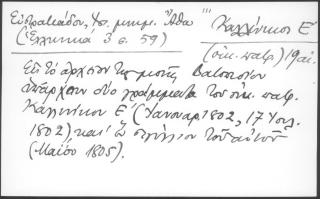 Εὐστρατιάδου, Ἱστ. μνημ. Ἄθω
(Ἑλληνικά 3 σ. 59)
Καλλίνικος Ε΄
(οἰκ. πατρ.) 19 αἰ.
Εἰς τὸ ἀρχεῖον τῆς μονῆς Βατοπεδίου
ὑπάρχουν δύο γράμματα τοῦ οἰκ. πατρ.
Καλλινίκου Ε΄ (Ἰανουαρ. 1802, 17 Ἰουλ.
1802), καὶ ἓν σιγίλλιον τοῦ αὐτοῦ
(Μαΐου 1805).